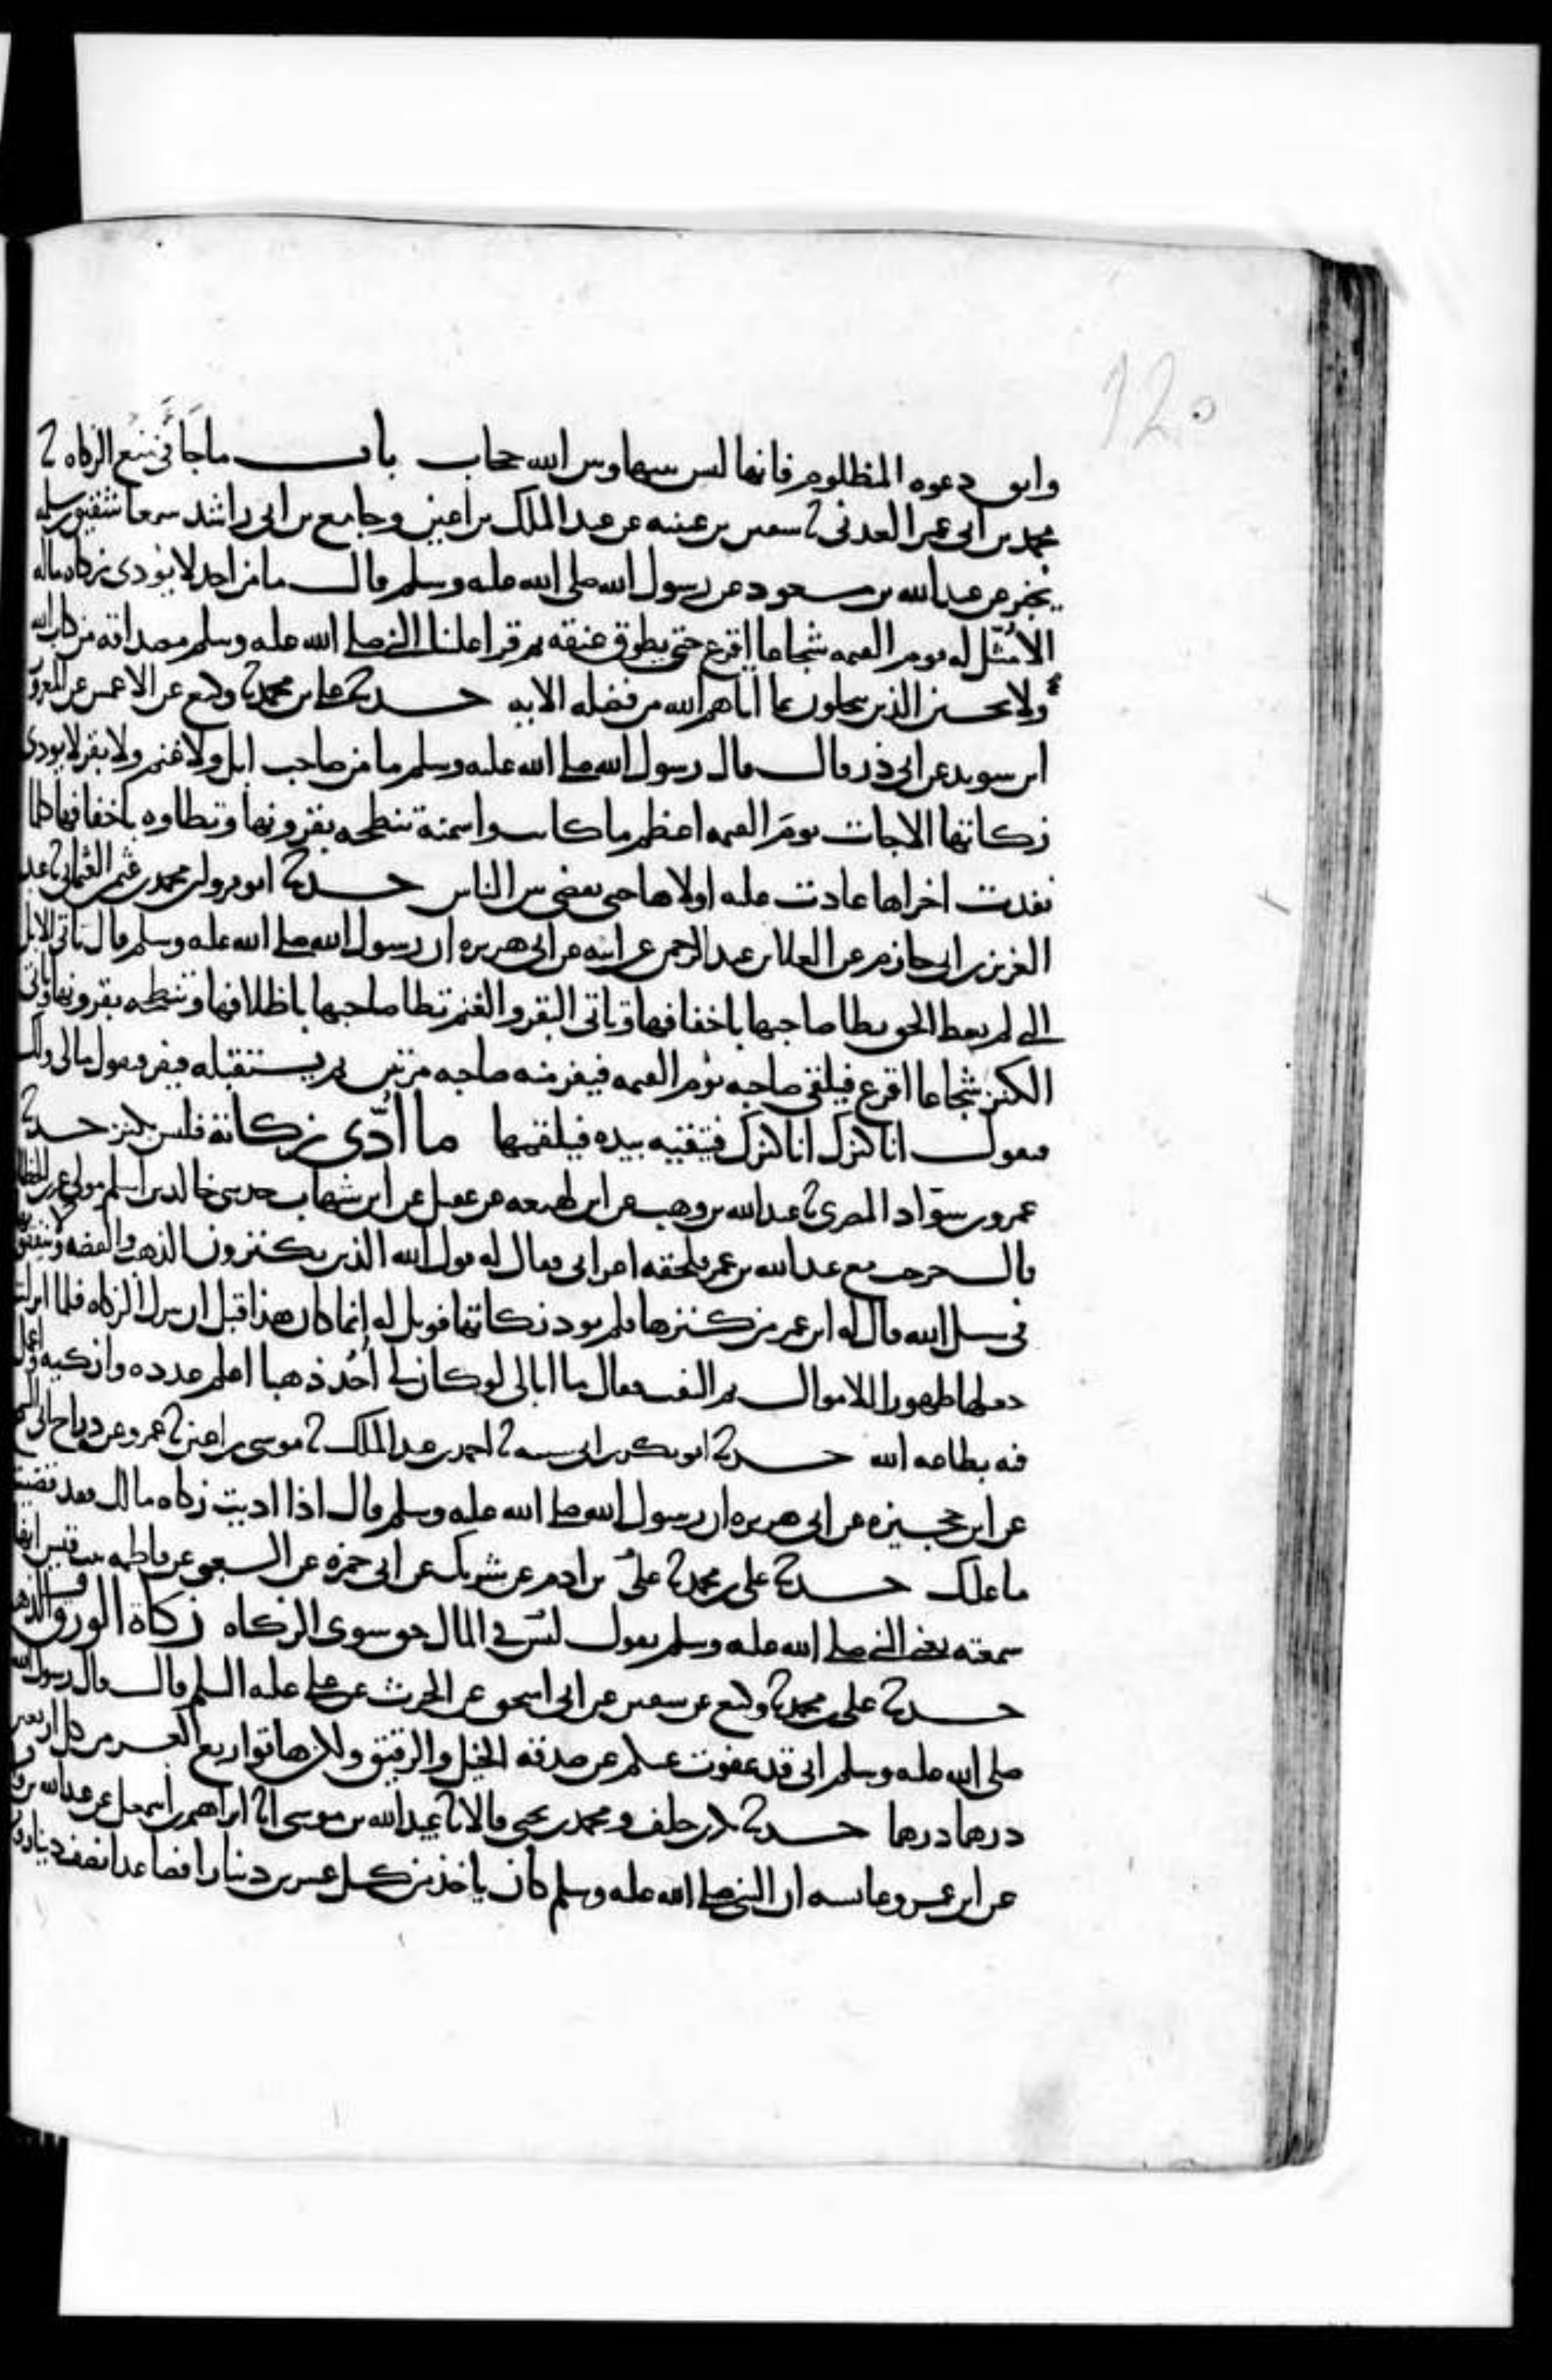 120
واتق دعوه المظلوم فانها ليس بينها وبين الله حجاب باب ما جا في منع الزكاه ثنا
محمد بن ابي عمر العدني ثنا سفين بن عيينه عن عبد الملك بن اعين وجامع بن ابي راشد سمعا شقيق بن سلمه
يخبر عن عبد الله بن مسعود عن رسول الله صلى الله عليه وسلم قال ما من احد لا يودي زكاه ماله
الا مثل له يوم القيمه شجاعا اقرع حتى يطوق عنقه ثم قرا علينا النبي صلى الله عليه وسلم مصداقه من كتاب الله
ولا يحسبن الذين يبخلون بما اتاهم الله من فضله الايه حدثنا علي بن محمد ثنا وكيع عن الاعمش عن المعرور
ابن سويد عن ابي ذر قال قال رسول الله صلى الله عليه وسلم ما من صاحب ابل ولا غنم ولا بقر لا يودي
زكاتها الا جات يوم القيمه اعظم ما كانت واسمنه تنطحه بقرونها وتطاوه باخفافها كلما
نفدت اخراها عادت عليه اولاها حتى يقضى بين الناس حدثنا ابو مروان محمد بن عثمن العثماني ثنا عبد
العزيز بن ابي حازم عن العلا بن عبد الرحمن عن ابيه عن ابي هريره ان رسول الله صلى الله عليه وسلم قال تاتي الابل
التي لم يعط الحق تطا صاحبها باخفافها وتاتي البقر والغنم تطا صاحبها باظلافها وتنطحه بقرونها وياتي
الكنز شجاعا اقرع فيلقى صاحبه يوم القيمه فيفر منه صاحبه مرتين ثم يستقبله فيفر فيقول مالي ولك
فيقول انا كنزك انا كنزك فيتقيه بيده فيلقمها ما ادى زكاته فليس بكنز حدثنا
عمرو بن سواد المصري ثنا عبد الله بن وهب عن ابن لهيعه عن عقيل عن ابن شهاب حدثني خالد بن اسلم مولى عمر بن الخطاب
قال خرجت مع عبد الله بن عمر فلحقه اعرابي فقال له قول الله الذين يكنزون الذهب والفضه ولا ينفقونها
في سبيل الله قال له ابن عمر من كنزها فلم يود زكاتها فويل له انما كان هذا قبل ان تنزل الزكاه فلما انزلت
جعلها طهورا للاموال ثم التفت فقال ما ابالي لو كان لي احد ذهبا اعلم عدده وازكيه واعمل
فيه بطاعه الله حدثنا ابو بكر بن ابي شيبه ثنا احمد بن عبد الملك ثنا موسى بن اعين ثنا عمرو عن دراج ابي السمح
عن ابن حجيره عن ابي هريره ان رسول الله صلى الله عليه وسلم قال اذا اديت زكاه مالك فقد قضيت
ما عليك حدثنا علي بن محمد ثنا علي بن ادم عن شريك عن ابي حمزه عن الشعبي عن فاطمه بنت قيس انها
سمعته يعني النبي صلى الله عليه وسلم يقول ليس في المال حق سوى الزكاه زكاة الورق والذهب
حدثنا علي بن محمد ثنا وكيع عن سفين عن ابي اسحق عن الحرث عن علي عليه السلم قال قال رسول الله
صلى الله عليه وسلم اني قد عفوت عنكم عن صدقه الخيل والرقيق ولكن هاتوا ربع العشر من كل اربعين
درهما درهما حدثنا بكر بن خلف ومحمد بن يحيى قالا ثنا عبيد الله بن موسى انا ابراهيم بن اسمعيل عن عبد الله بن واقد
عن ابن عمر وعايشه ان النبي صلى الله عليه وسلم كان ياخذ من كل عشرين دينارا فصاعدا نصف دينار